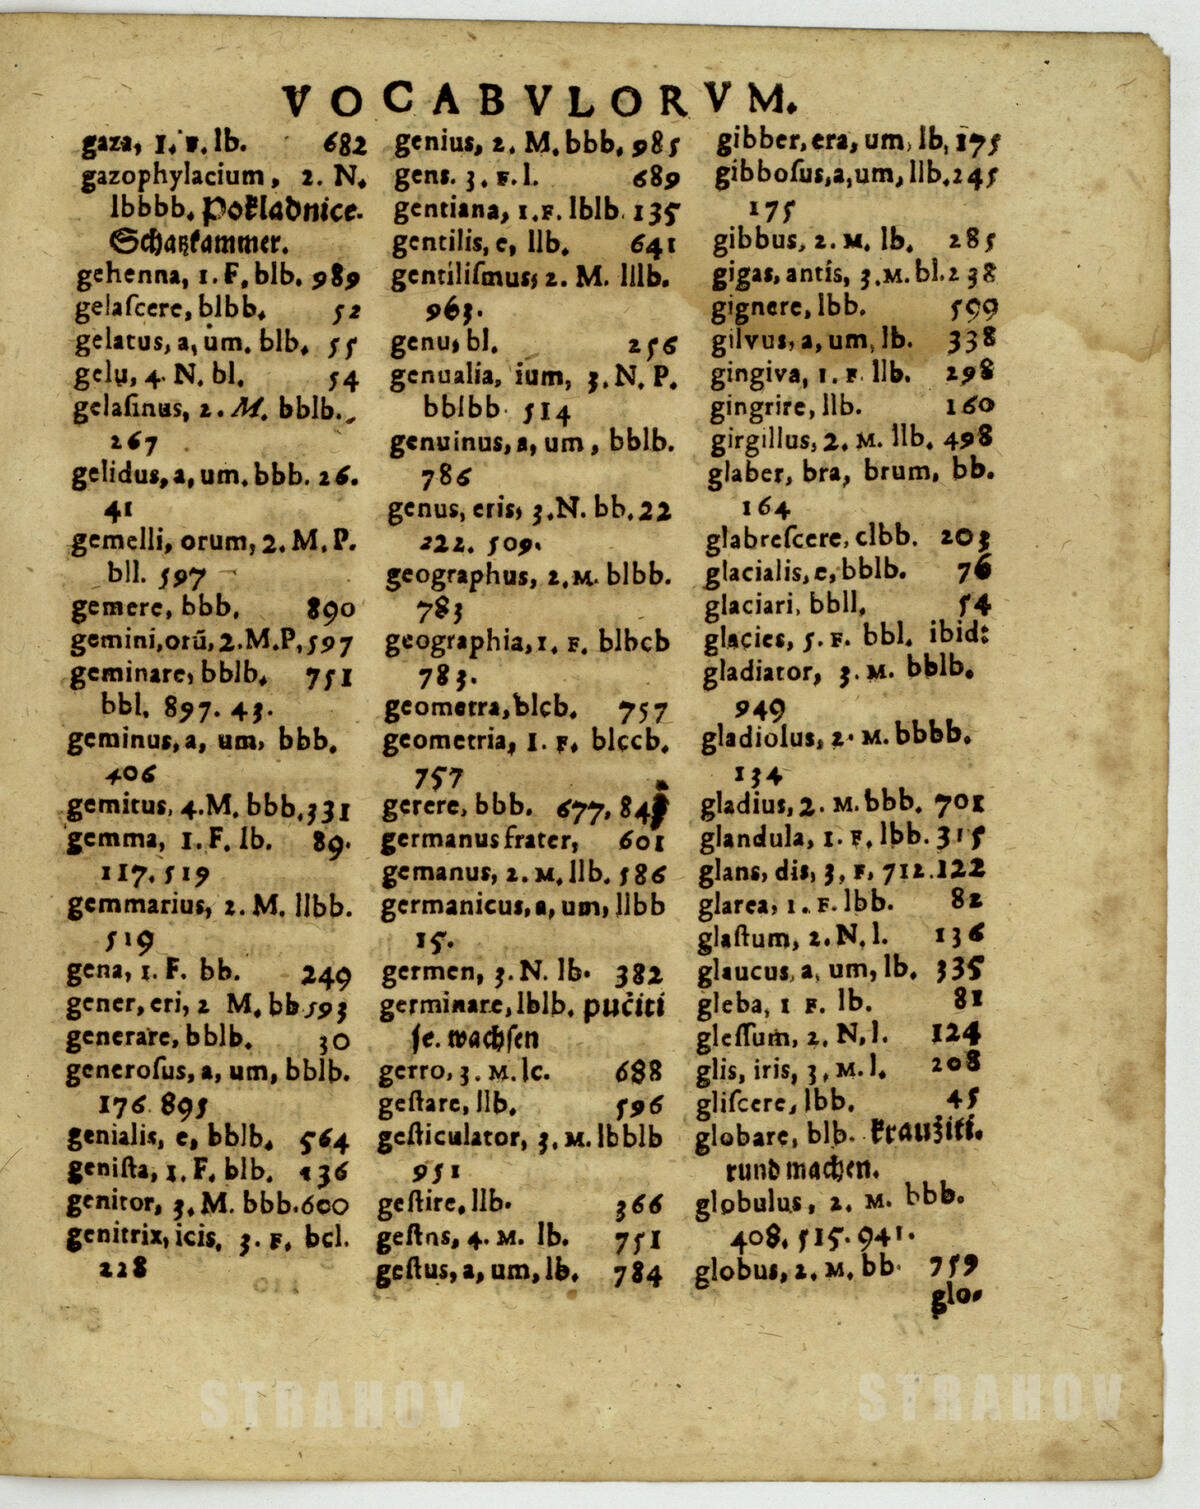 VOCABVLORVM.
gaza, 1. F. lb. 682
gazophylacium, 2. N.
lbbbb. Pokladnice.
Schatzkammer.
gehenna, 1. F. blb. 989
gelaſcere, blbb. 52
gelatus, a, um. blb. 55
gelu, 4. N. bl. 54
gelaſinus, 2. M. bblb.
267
gelidus, a, um. bbb. 26.
41
gemelli, orum, 2. M. P.
bll. 597
gemere, bbb. 890
gemini, orū, 2. M. P. 597
geminare, bblb. 751
bbl. 897. 43.
geminus, a, um, bbb.
406
gemitus, 4. M. bbb. 331
gemma, 1. F. lb. 89.
117. 519
gemmarius, 2. M. llbb.
519
gena, 1. F. bb. 249
gener, eri, 2 M. bb 593
generare, bblb. 30
generoſus, a, um, bblb.
176. 895
genialis, e, bblb. 564
geniſta, 1. F. blb. 136
genitor, 3. M. bbb. 600
genitrix, icis, 3. F. bcl.
228
genius, 2. M. bbb. 985
gens. 3. F. l. 689
gentiana, 1. F. lblb. 135
gentilis, e, llb. 641
gentiliſmus, 2. M. lllb.
963.
genu, bl. 256
genualia, ium, 3. N. P.
bblbb. 514
genuinus, a, um, bblb.
786
genus, eris, 3. N. bb. 22
222. 509.
geographus, 2. M. blbb.
783
geographia, 1. F. blbcb
783.
geometra, blcb. 757
geometria, 1. F. blccb.
757
gerere, bbb. 677. 84
germanus frater, 601
gemanus, 2. M. llb. 586
germanicus, a, um, llbb
15.
germen, 3. N. lb. 382
germinare, lblb. pučiti
ſe. wachſen
gerro, 3. M. lc. 688
geſtare, llb. 596
geſticulator, 3. M. lbblb
951
geſtire, llb. 366
geſtns, 4. M. lb. 751
geſtus, a, um, lb. 784
gibber, era, um, lb, 175
gibboſus, a, um, llb. 245
175
gibbus, 2. M. lb. 285
gigas, antis, 3. M. bl. 238
gignere, lbb. 599
gilvus, a, um, lb. 338
gingiva, 1. F. llb. 298
gingrire, llb. 160
girgillus, 2. M. llb. 498
glaber, bra, brum, bb.
164
glabreſcere, clbb. 203
glacialis, e, bblb. 76
glaciari, bbll. 54
glacies, 5. F. bbl. ibid:
gladiator, 3. M. bblb.
949
gladiolus, 2. M. bbbb.
134
gladius, 2. M. bbb. 701
glandula, 1. F. lbb. 315
glans, dis, 3. F. 712. 122
glarea, 1. F. lbb. 82
glaſtum, 2. N. l. 136
glaucus, a, um, lb. 335
gleba, 1 F. lb. 81
gleſſum, 2. N. l. 124
glis, iris, 3. M. l. 208
gliſcere, lbb. 45
globare, blb. kraužiti.
rund machen.
globulus, 2. M. bbb.
408. 515. 941.
globus, 2. M. bb. 759
glo-
STRAHOV STRAHOV